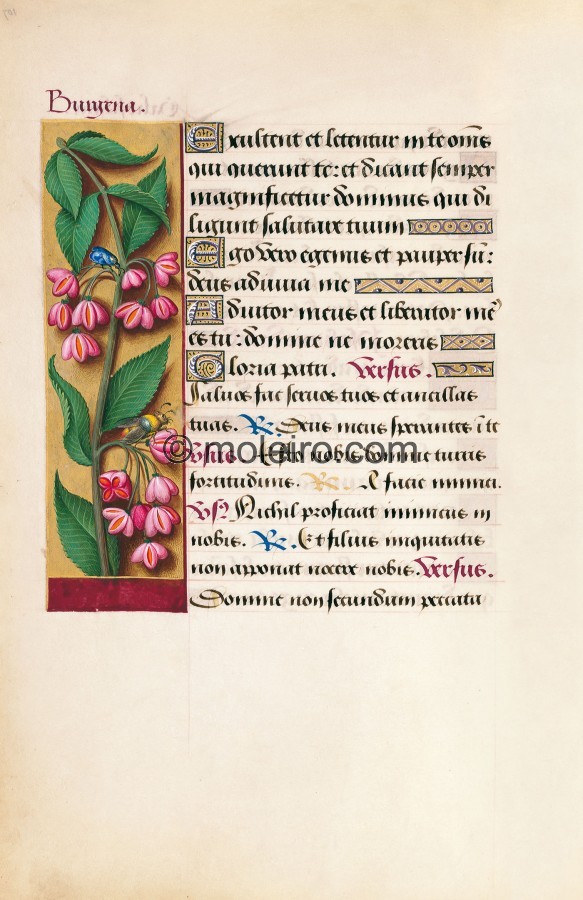 Burgena.
Exultent et letentur in te om̄s
qui querunt te: et dicant semper
magnificetur dominus qui di
ligunt salutare tuum
Ego vero egenus et pauper sū:
deus adiuva me
Adiutor meus et liberator me᾽
es tu: domine ne moreris
Gloria patri. Versus.
Salvos fac servos tuos et ancillas
tuas. R. Deus meus sperantes ī te
Vsus Esto nobis domine turris
fortitudinis. A facie inimici.
Vs Nichil proficiat inimicus in
nobis. R. Et filius iniquitatis
non apponat nocere nobis. Versus.
Domine non secundum peccata
© moleiro.com